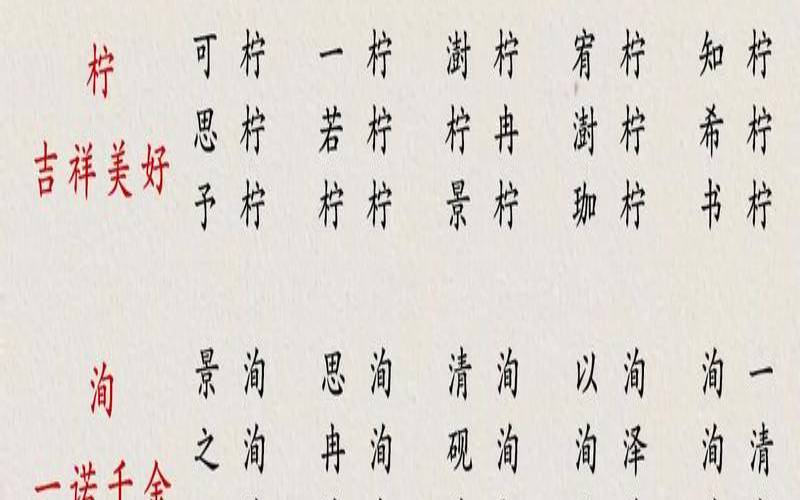 柠
吉祥美好
可柠 一柠 澍柠 宥柠 知柠
思柠 若柠 柠冉 澍柠 希柠
予柠 柠柠 景柠 珈柠 书柠
洵
一诺千金
景洵 思洵 清洵 以洵 洵一
之洵 冉洵 砚洵 洵泽 洵清